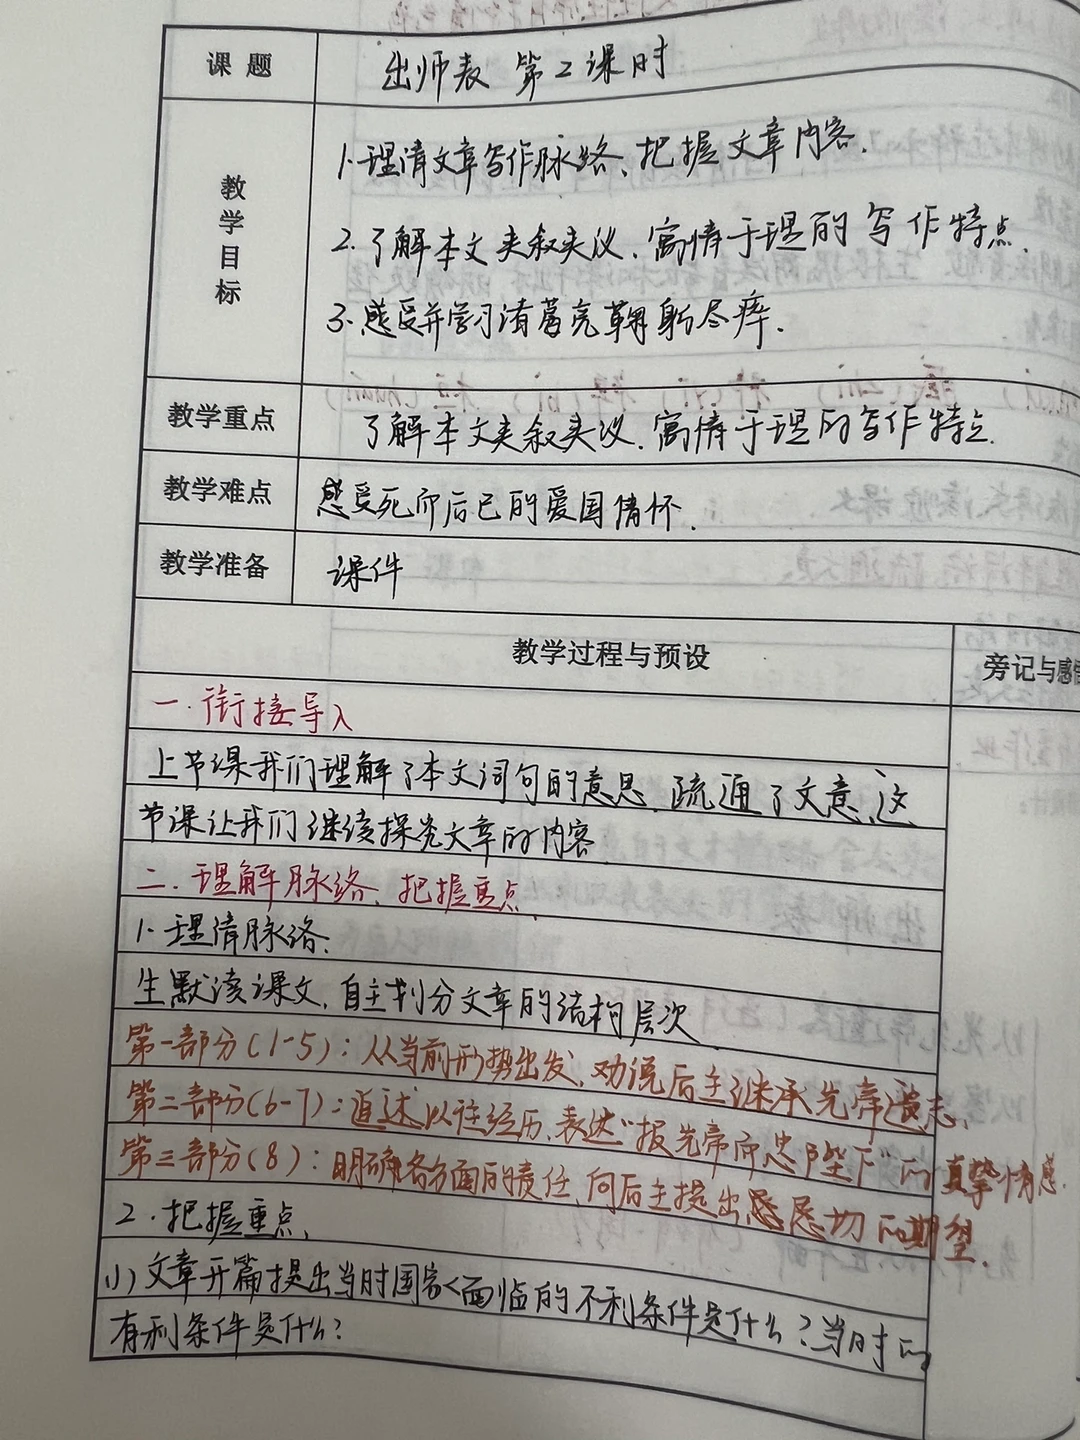 课题 出师表 第2课时
教学目标
1.理清文章写作脉络、把握文章内容.
2.了解本文夹叙夹议、寓情于理的写作特点.
3.感受并学习诸葛亮鞠躬尽瘁.
教学重点 了解本文夹叙夹议、寓情于理的写作特点.
教学难点 感受死而后已的爱国情怀.
教学准备 课件
教学过程与预设 旁记与感悟
一.衔接导入
上节课我们理解了本文词句的意思、疏通了文意、这
节课让我们继续探究文章的内容
二.理解脉络、把握重点、
1.理清脉络.
生默读课文,自主划分文章的结构层次
第一部分(1-5):从当前形势出发、劝说后主继承先帝遗志、
第二部分(6-7):追述以往经历、表达"报先帝而忠陛下"的真挚情感.
第三部分(8):明确各方面的责任、向后主提出恳切的期望.
2.把握重点、
(1)文章开篇提出当时国家面临的不利条件是什么?当时的
有利条件是什么?